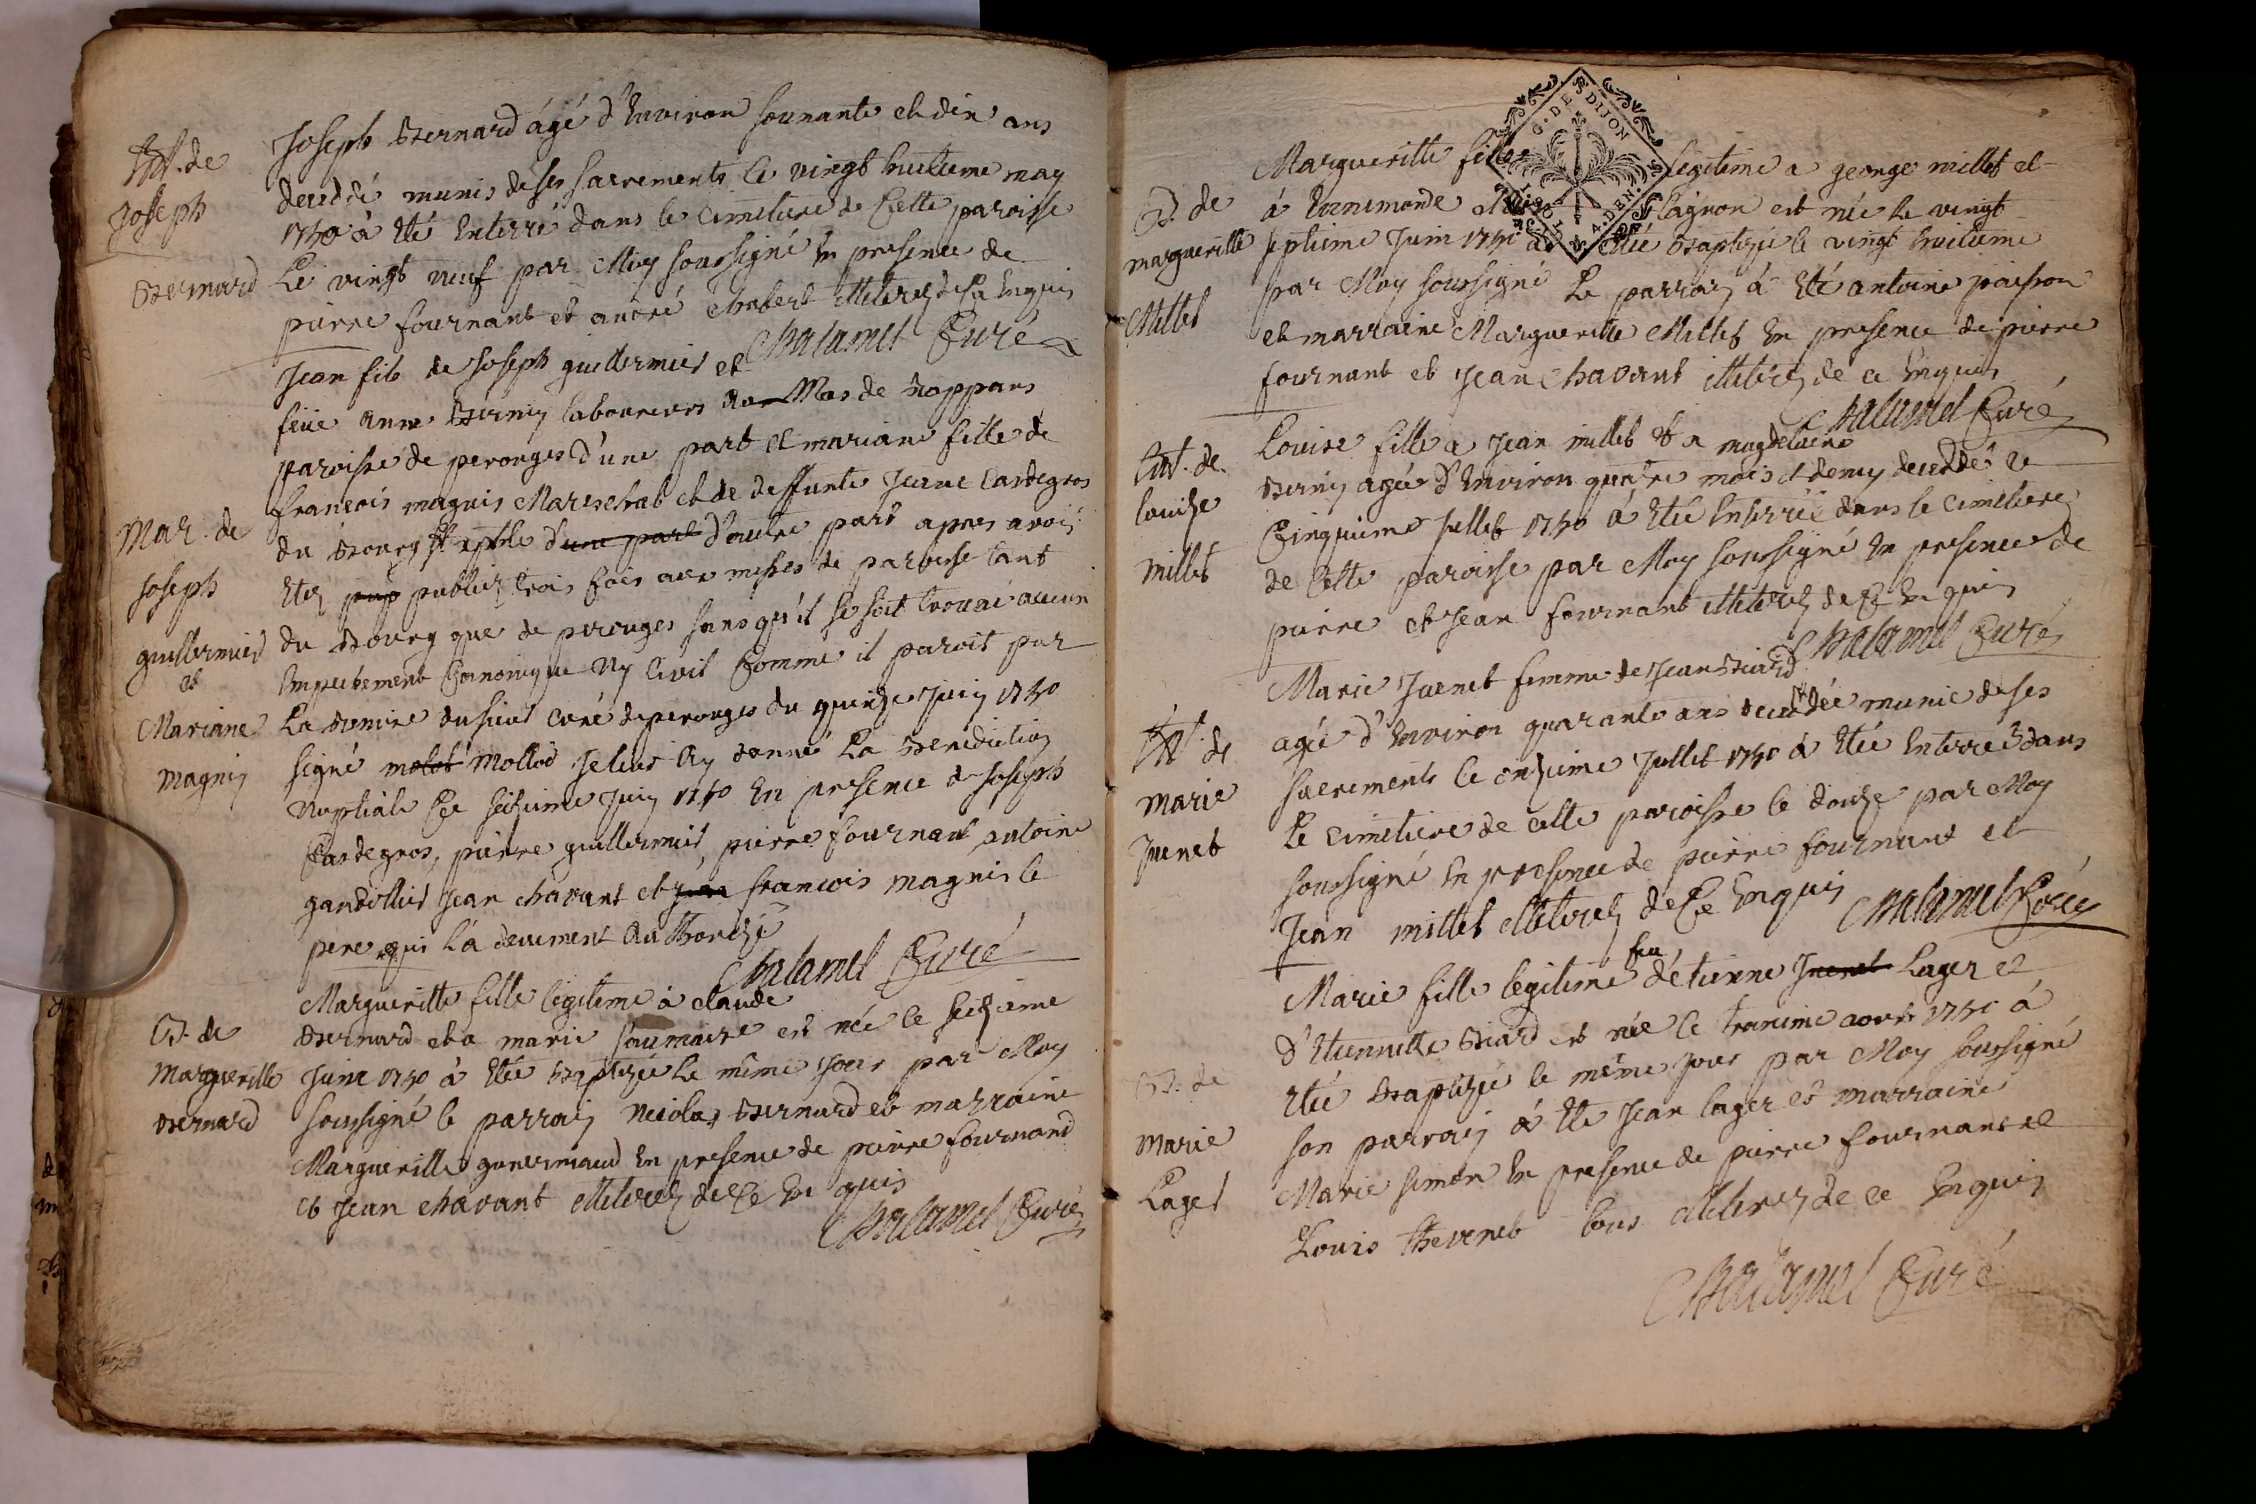 Ent. de
Joseph
Bernard
Joseph Bernard agé d'Environ soixante et dix ans
decedé munis de ses sacrements le vingt huitieme may
1750 à Eté Enterré dans le Cimetiere de Cette paroisse
Le vingt neuf par Moy soussigné En presence de
pierre fournant et andré Chabert illiterez de Ce Enquis
Chalamel Curé
Mar. de
Joseph
guillermied
et
Mariane
magnin
Jean fils de Joseph guillermied et
feüe anne Bernin laboureurs au Mas de Rappans
paroisse de perouges d'une part et mariane fille de
francois magnis Mareschal et de deffunte Jeanne Cardegros
du Bourg St xptle d'une part d'autre part apres avoir
Etez pup publiez trois fois aux messes de paroisse tant
du Bourg que de perouges sans qu'il se soit trouvé aucun
Empechement Canonique Ny Civil Comme il paroit par
La Remise du sieur curé de perouges du quinze Juin 1750
signé molet Mollod Je leur Ay donné La Benediction
Nuptiale Ce seizieme Juin 1750 En presence de Joseph
Cardegros, pierre guillermied, pierre fournant, antoine
gandollied Jean chavant et Jean francois magnis le
pere qui L'a deuement Authorizé
Chalamel Curé
B. de
Marguerille
Bernard
Margueritte fille legitime à claude
Bernard et a marie saumaire est née le seizieme
Juine 1750 à Etée Baptizée Le même Jour par Moy
soussigné le parrain Nicolas Bernard et marraine
Margueritte guuermaud En presence de pierre fournand
et Jean chavant illiterez de Ce En quis
Chalamel Curé
B. de
marguerille
Millet
Margueritte fille legitime a george millet et
à Ennemonde Clagnon est née Le vingt
septieme Juin 1750 a Etée Baptizée le vingt huitieme
par Moy soussigné Le parrain à Eté antoine poisson
et marraine Margueritte Millet En presence de pierre
fournant et Jean Chavant illiterez de ce Enquis
Chalamel Curé
Ent. de
louise
millet
Louise fille a Jean millet et a magdelaine
Bernin agée d'Environ quatre mois et demy decedée ce
Cinquieme Jullet 1750 à Etée Enterrée dans le Cimetiere
de Cette paroisse par Moy soussigné En presence de
pierre et Jean fournant illiterez de Ce Enquis
Chalamel Curé
Ent. de
marie
Juenet
Marie Juenet femme de Jean Biard
agée d'Environ quarante ans decedée munie de ses
sacrements le onzieme Jullet 1750 à Etée Enterrée dans
Le Cimetiere de cette paroisse le douze par Moy
soussigné En presence de pierre fournant et
Jean millet illiterez de Ce Enquis
Chalamel Curé
B. de
Marie
Lager
Marie fille legitime feu d'étienne Juenet Lager et
d'Etiennette Biard est née le troisieme aout 1750 à
Etée Baptizée le même Jour par Moy soussigné
son parrain à Eté Jean lager et marraine
Marie simon En presence de pierre fournant et
Louis Thevenet tous illiterez de ce Enquis
Chalamel Curé
G. DE DIJON
4. DEN.